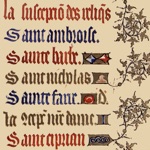 la susception des reliqs
Saint ambroise.
Sainte barbe.
Saint nicholas
Sainte fare
La
nre dame
Saint ciprian